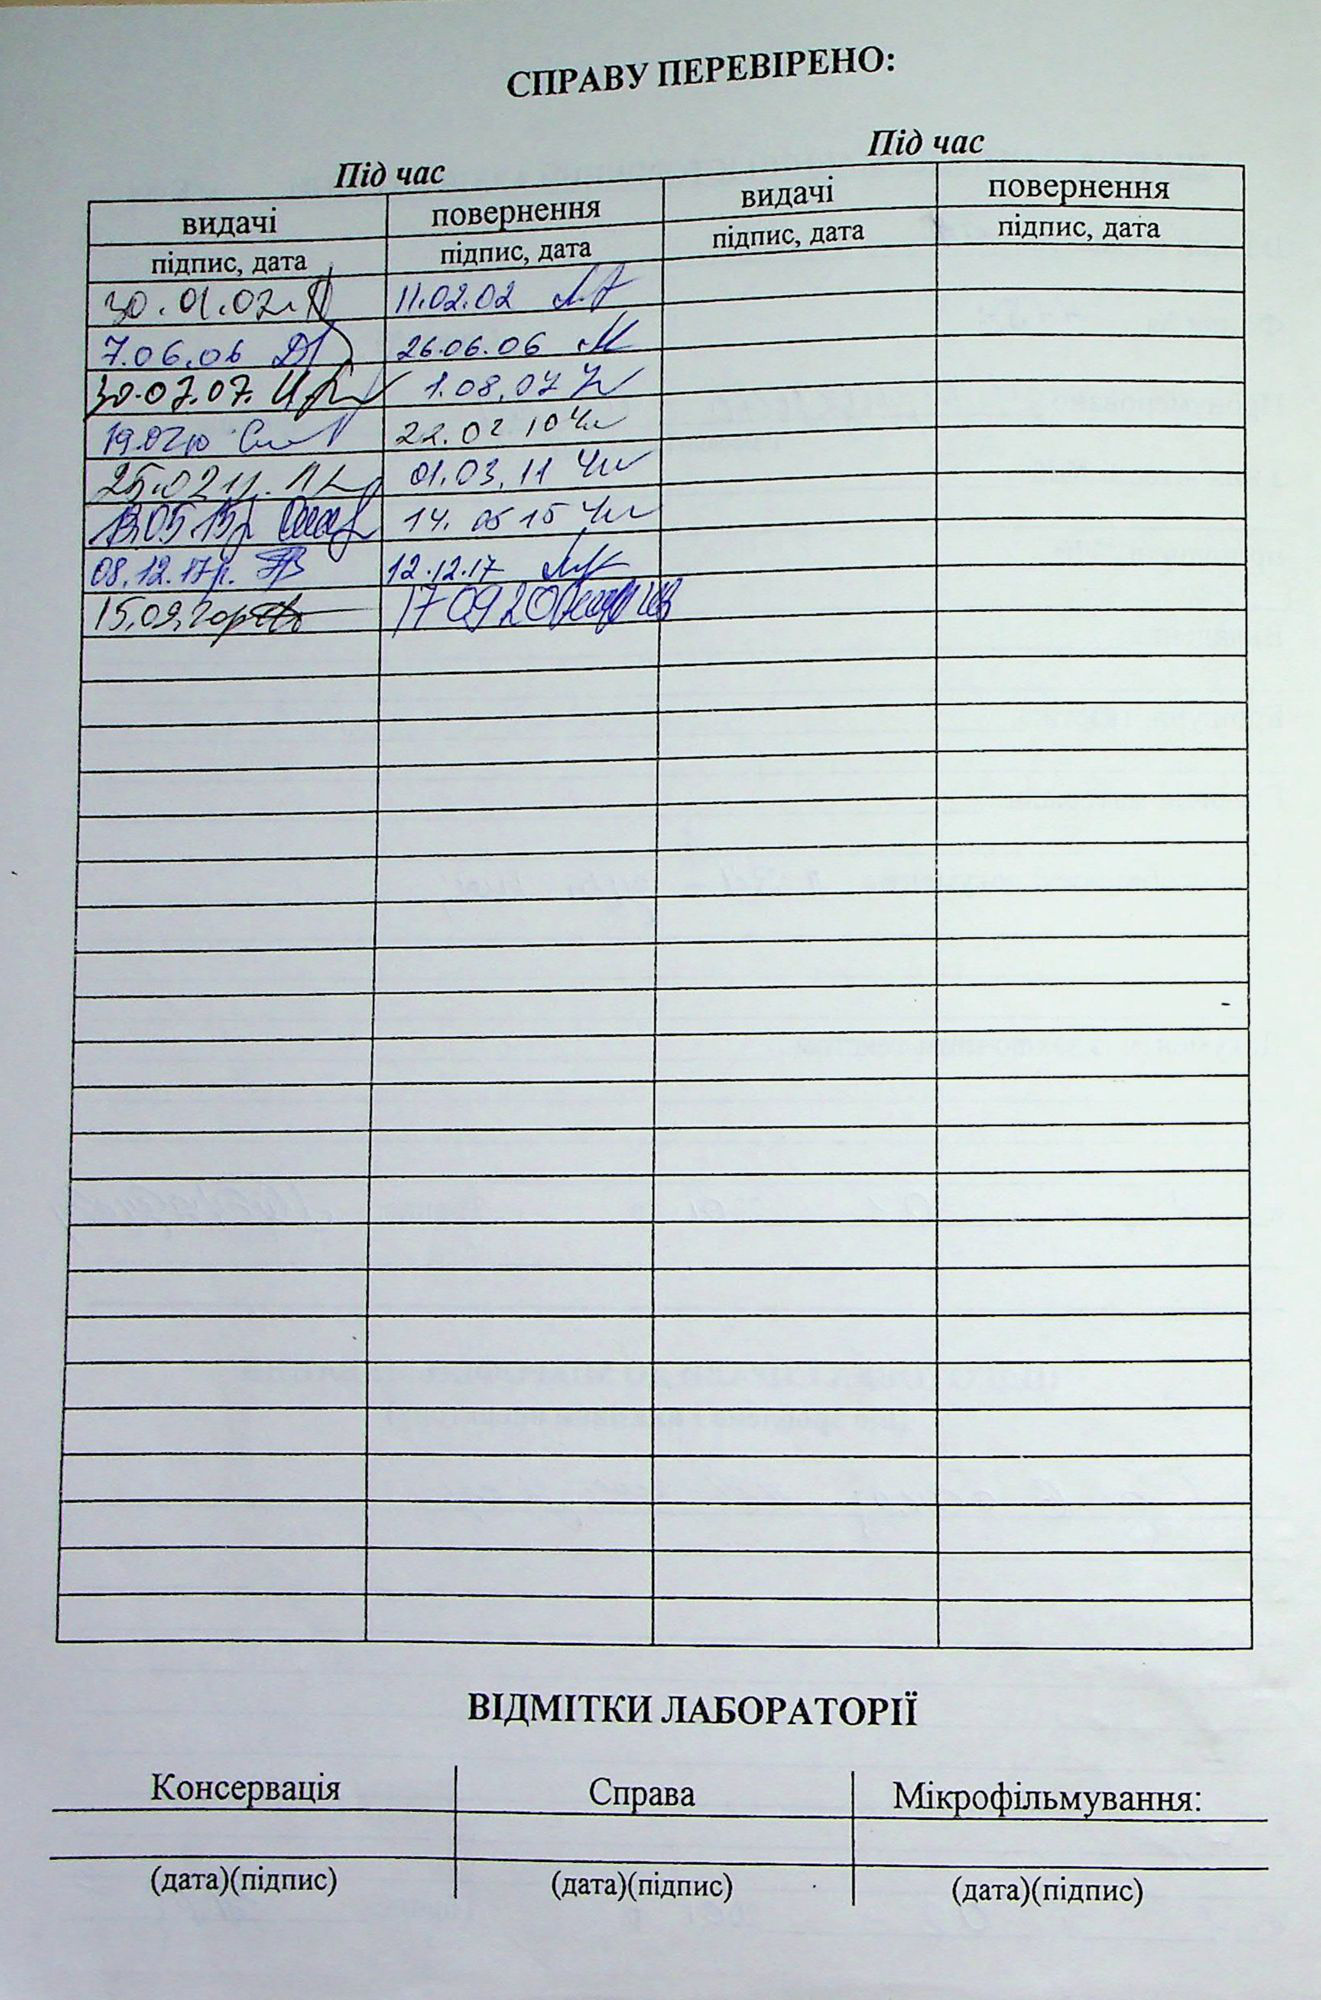 СПРАВУ ПЕРЕВІРЕНО:
Під час Під час
видачі повернення видачі повернення
підпис, дата підпис, дата підпис, дата підпис, дата
30.01.02 11.02.02
7.06.06 26.06.06
30.07.07. 1.08.07
19.02.10 22.02 10
25.02.11р. 01.03.11
13.05.15р 14.05 15
08.12.17р. 12.12.17
15.09.20р 17 09 20
ВІДМІТКИ ЛАБОРАТОРІЇ
Консервація Справа Мікрофільмування:
(дата)(підпис) (дата)(підпис) (дата)(підпис)